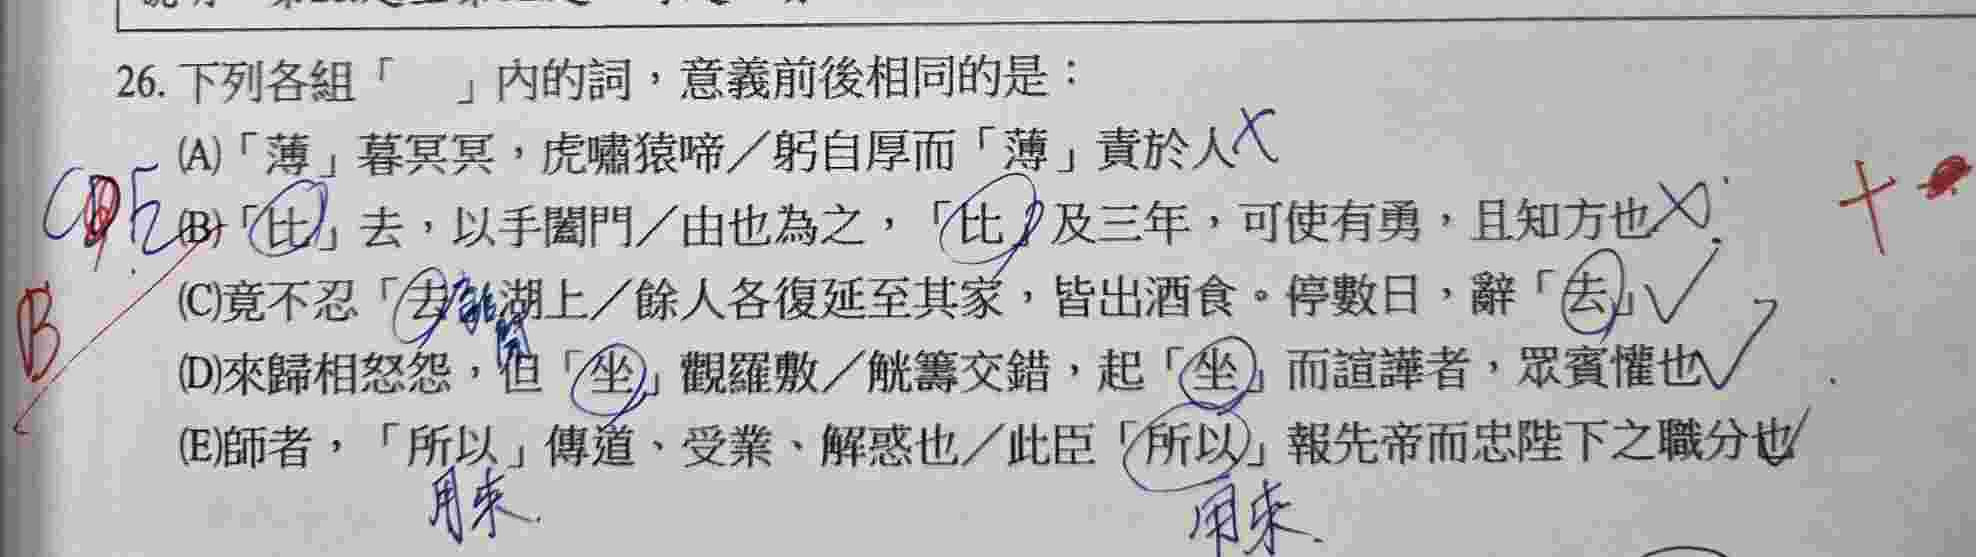 26. 下列各組「　」內的詞，意義前後相同的是：
(A)「薄」暮冥冥，虎嘯猿啼／躬自厚而「薄」責於人 X
CDE
(B)「比」去，以手闔門／由也為之，「比」及三年，可使有勇，且知方也 X
B
(C)竟不忍「去」湖上／餘人各復延至其家，皆出酒食。停數日，辭「去」✓
(D)來歸相怒怨，但「坐」觀羅敷／觥籌交錯，起「坐」而諠譁者，眾賓懽也✓
(E)師者，「所以」傳道、受業、解惑也／此臣「所以」報先帝而忠陛下之職分也✓
用來. 用來.